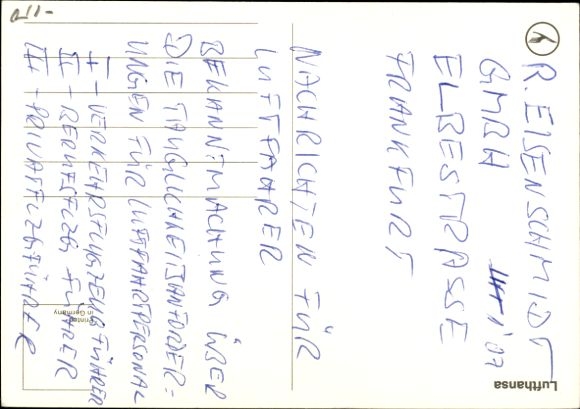 R. EISENSCHMIDT
GMBH
ELBESTRASSE
FRANKFURT
NACHRICHTEN FÜR
LUFTFAHRER
BEKANNTMACHUNG ÜBER
DIE TAUGLICHKEITSANFORDER=
UNGEN FÜR LUFTFAHRTPERSONAL
I - VERKEHRSFLUGZEUGFÜHRER
II - BERUFSFLZG FÜHRER
III - PRIVATFLZGFÜHRER
Lufthansa
Printed
in Germany